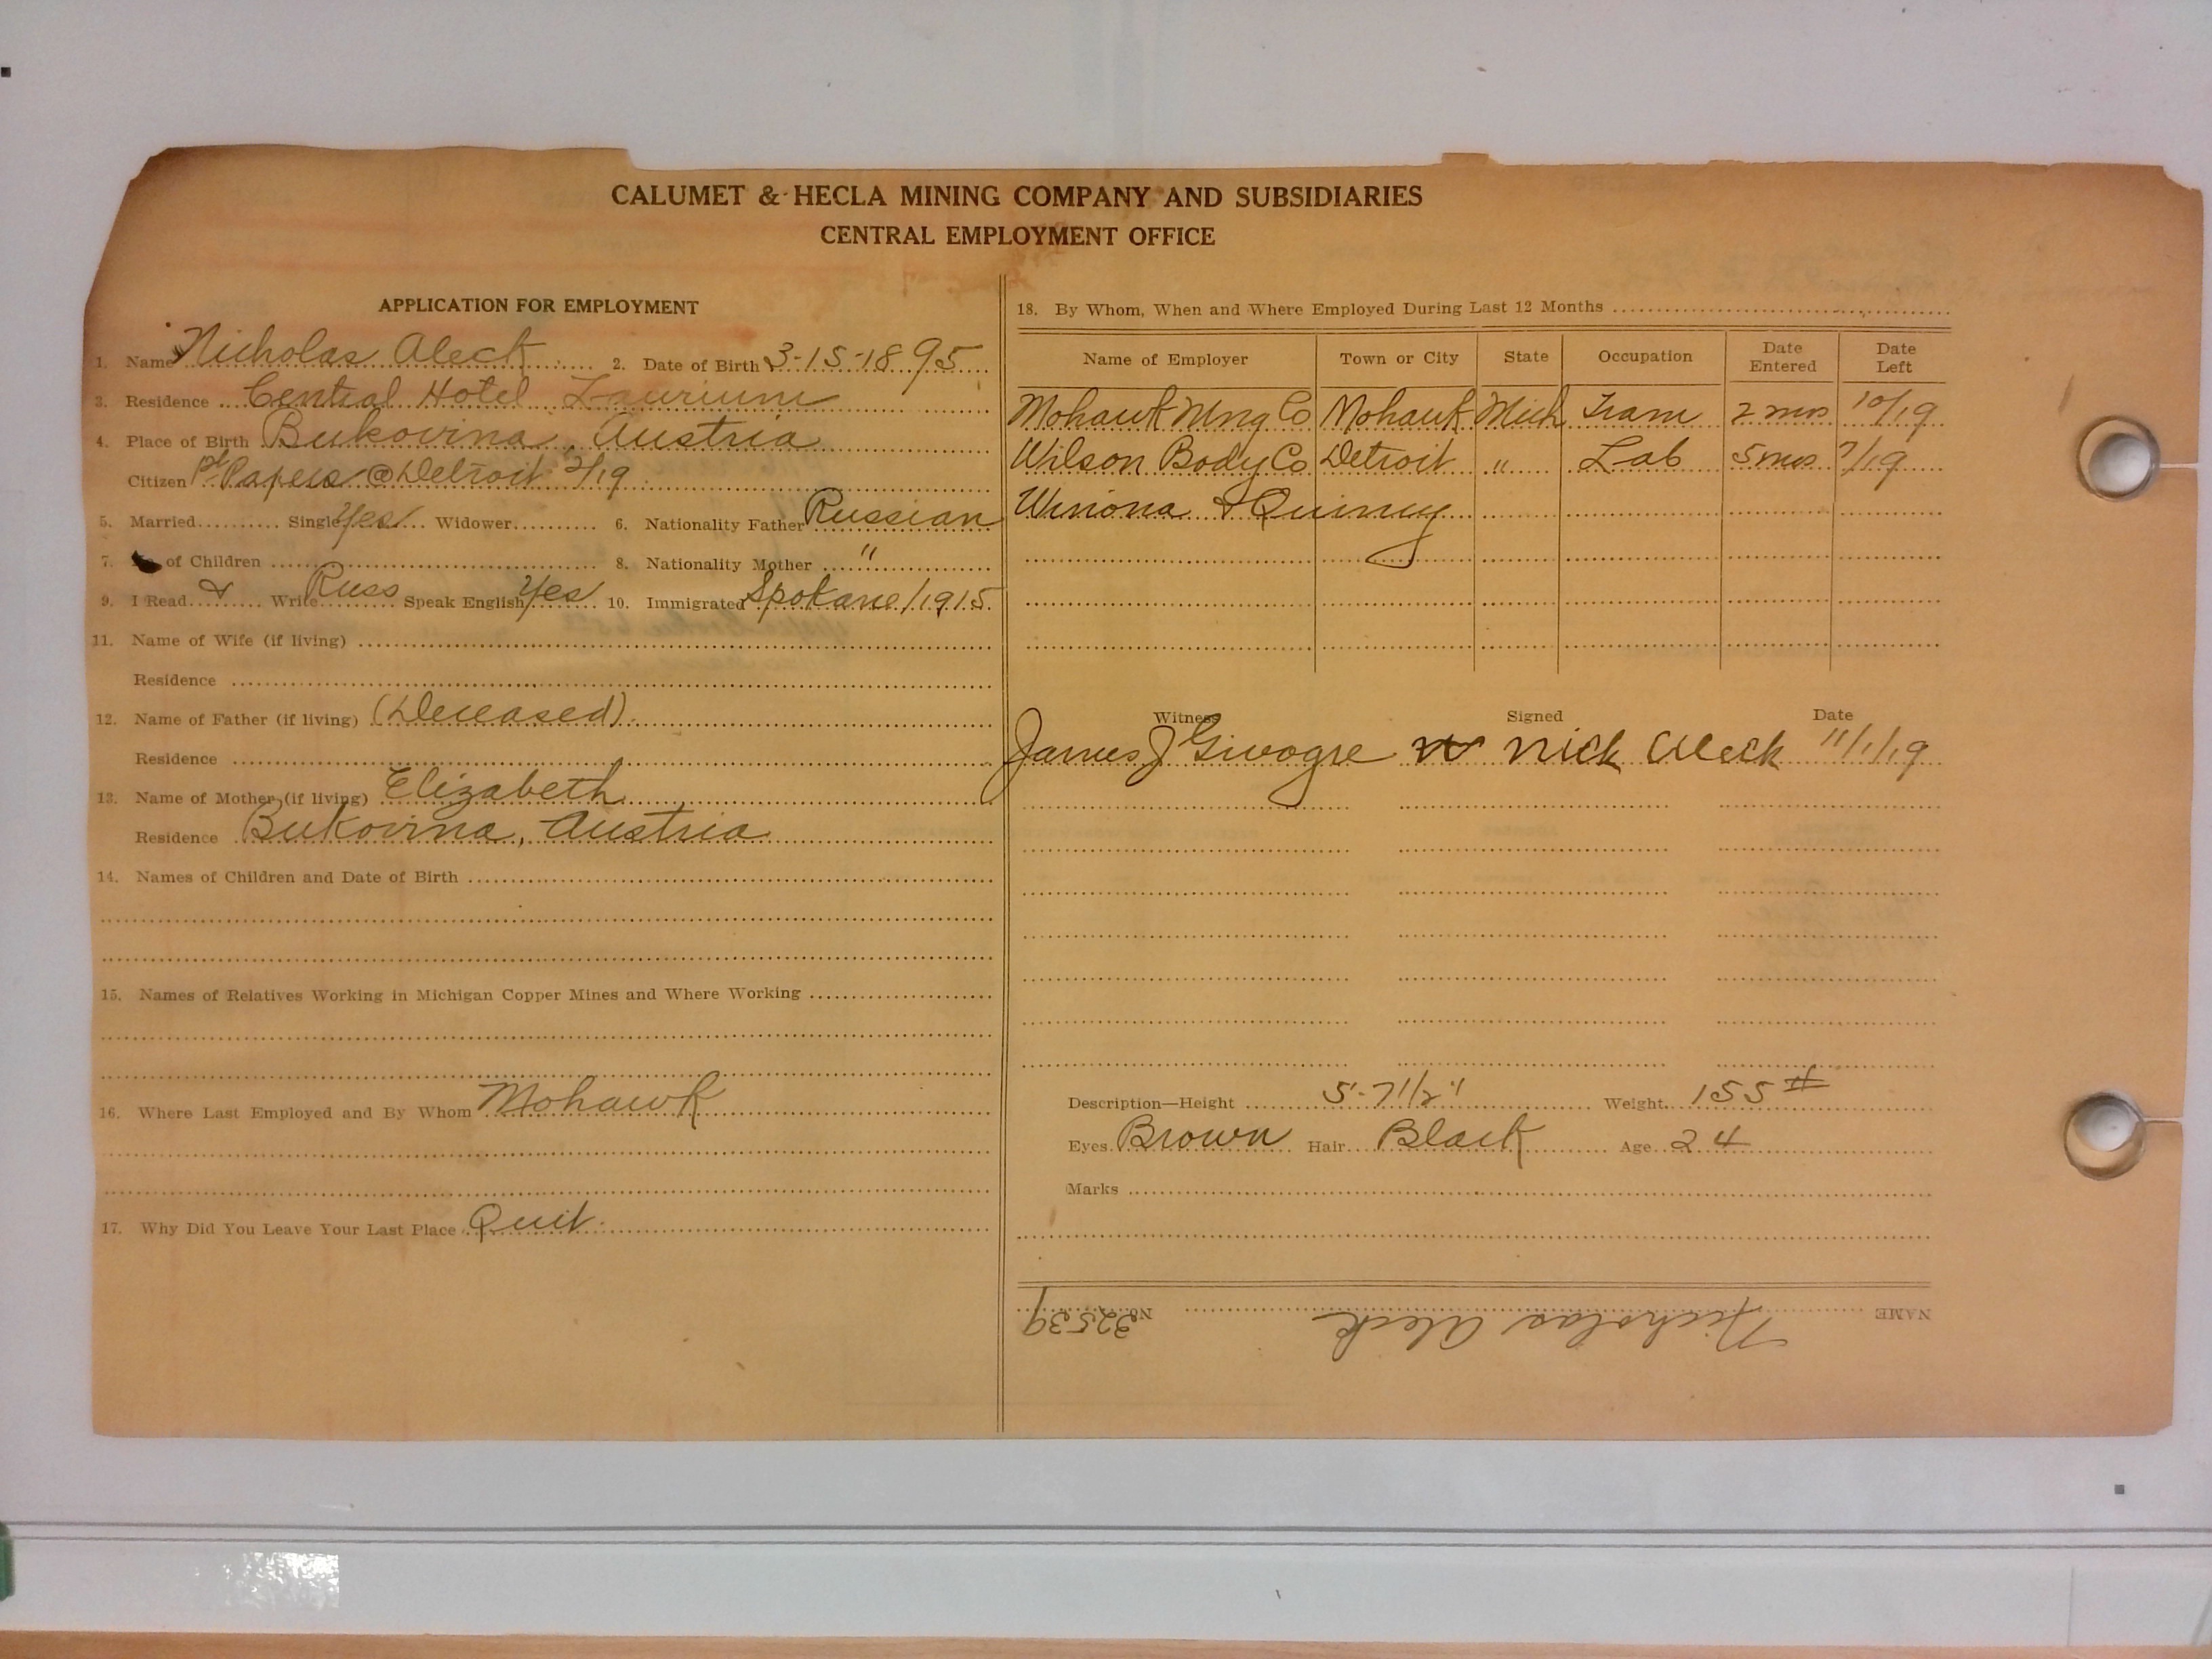 CALUMET & HECLA MINING COMPANY AND SUBSIDIARIES
CENTRAL EMPLOYMENT OFFICE
APPLICATION FOR EMPLOYMENT
1. Name Nicholas Aleck 2. Date of Birth 3-15-1895
3. Residence Central Hotel Laurium
4. Place of Birth Bukovina, Austria
Citizen 1st Papers @ Detroit 2/19
5. Married Single Yes Widower 6. Nationality Father Russian
7. of Children 8. Nationality Mother "
9. I Read & Write Russ Speak English Yes 10. Immigrated Spokane/1915
11. Name of Wife (if living)
Residence
12. Name of Father (if living) (Deceased)
Residence
13. Name of Mother (if living) Elizabeth
Residence Bukovina, Austria
14. Names of Children and Date of Birth
15. Names of Relatives Working in Michigan Copper Mines and Where Working
16. Where Last Employed and By Whom Mohawk
17. Why Did You Leave Your Last Place Quit
18. By Whom, When and Where Employed During Last 12 Months
Name of Employer Town or City State Occupation Date Entered Date Left
Mohawk Mng Co Mohawk Mich Tram 2 mos 10/19
Wilson Body Co Detroit " Lab 5 mos 7/19
Winona & Quincy
Witness Signed Date
James J Givogre Nick Aleck 11/1/19
Description—Height 5'-7 1/2" Weight 155 #
Eyes Brown Hair Black Age 24
Marks
NAME Nicholas Aleck No. 32539